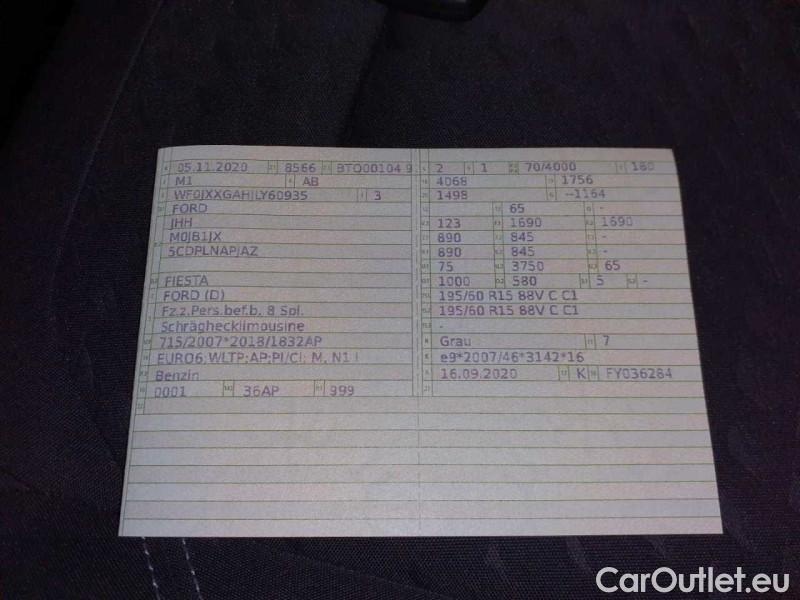 05.11.2020 8566 BTO00104 9
M1 AB
WF0JXXGAHJLY60935 3
FORD
JHH
M0JB1JX
5CDPLNAPJAZ
FIESTA
FORD (D)
Fz.z.Pers.bef.b. 8 Spl.
Schräghecklimousine
715/2007*2018/1832AP
EURO6;WLTP;AP;PI/CI; M, N1 I
Benzin
0001 36AP 999
2 1 70/4000 180
4068 1756
1498 --1164
65 -
123 1690 1690
890 845 -
890 845 -
75 3750 65
1000 580 5 -
195/60 R15 88V C C1
195/60 R15 88V C C1
-
Grau 7
e9*2007/46*3142*16
16.09.2020 K FY036284
CarOutlet.eu